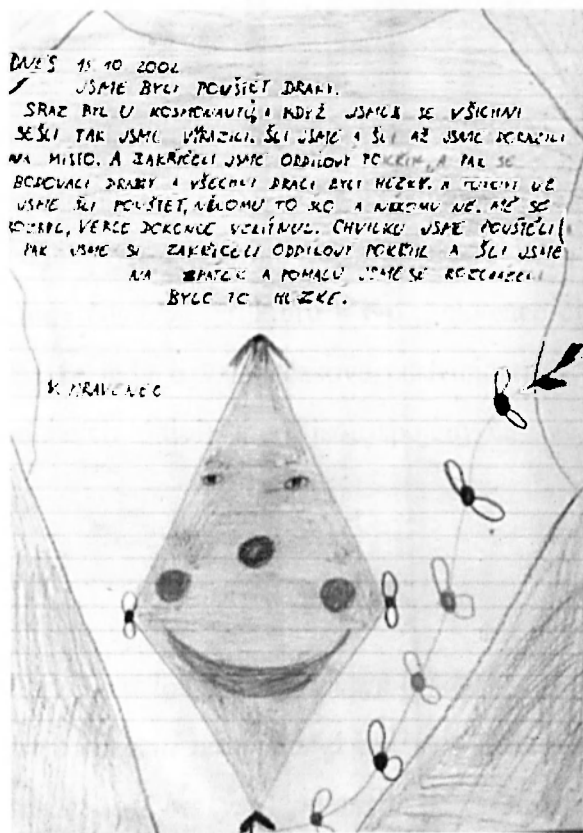 DNES 15.10 2002
JSME BYLI POUŠTĚT DRAKY.
SRAZ BYL U KOSMONAUTŮ A KDYŽ JSME SE VŠICHNI
SEŠLI TAK JSME VYRAZILI. ŠLI JSME A ŠLI AŽ JSME DORAZILI
NA MISTO. A ZAKŘIČELI JSME ODDILOVÝ POKŘIK, A PAK SE
BODOVALI DRAKY A VŠECHNI DRACI BYLI HEZKY. A UŽ
JSME ŠLI POUŠTET, NĚKOMU TO ŠLO A NĚKOMU NE. MĚ SE
VERČE DOKONCE ULÍTNUL. CHVILKU JSME POUŠTĚLI
PAK JSME SI ZAKŘIČELI ODDILOVÝ POKŘIK A ŠLI JSME
NA ZPATEK A POMALU JSME SE ROZCHÁZELI
BYLO TO HEZKÉ.
MRAVENEC